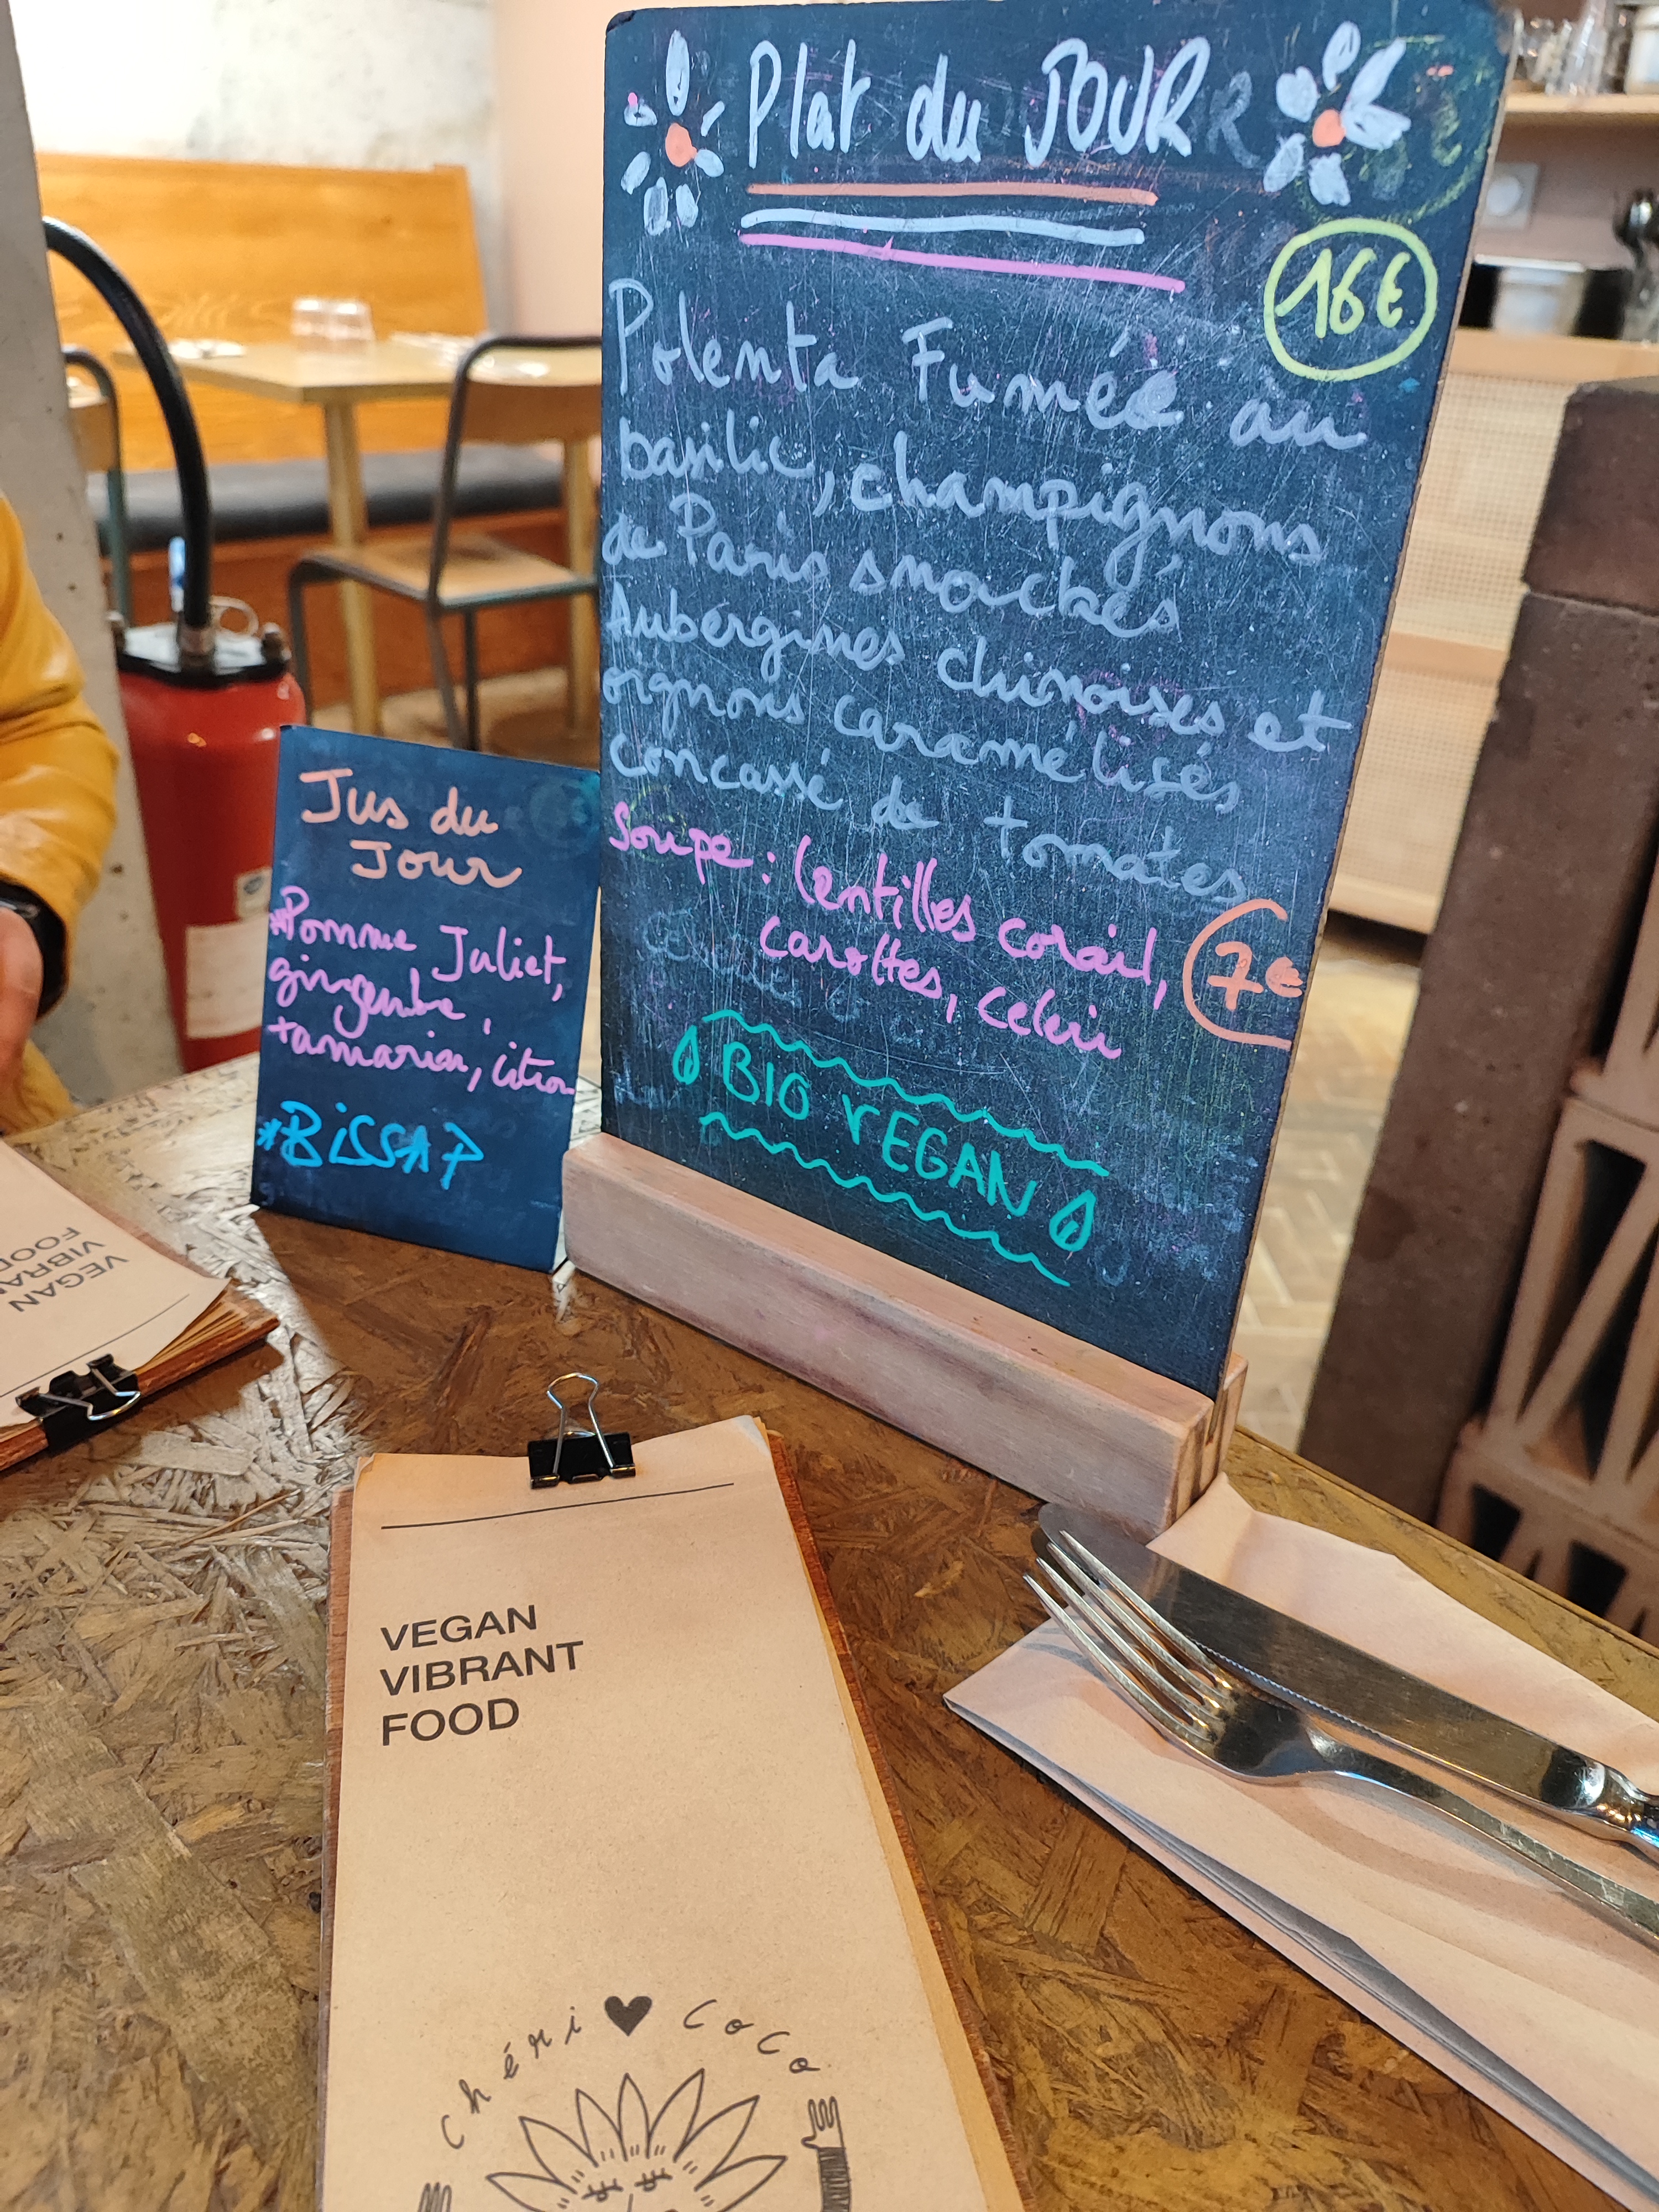 Plat du JOUR
16€
Polenta Fumée au
basilic, champignons
de Paris snackés
Aubergines chinoises et
oignons caramélisés
concassé de tomates
Soupe : lentilles corail,
carottes, celeri
7€
BIO VEGAN
Jus du
Jour
*Pomme Juliet,
gingembre,
tamarin, citron
*BiSSAP
VEGAN
VIBRANT
FOOD
VEGAN
VIBRANT
FOOD
chéri ♥ CoCo